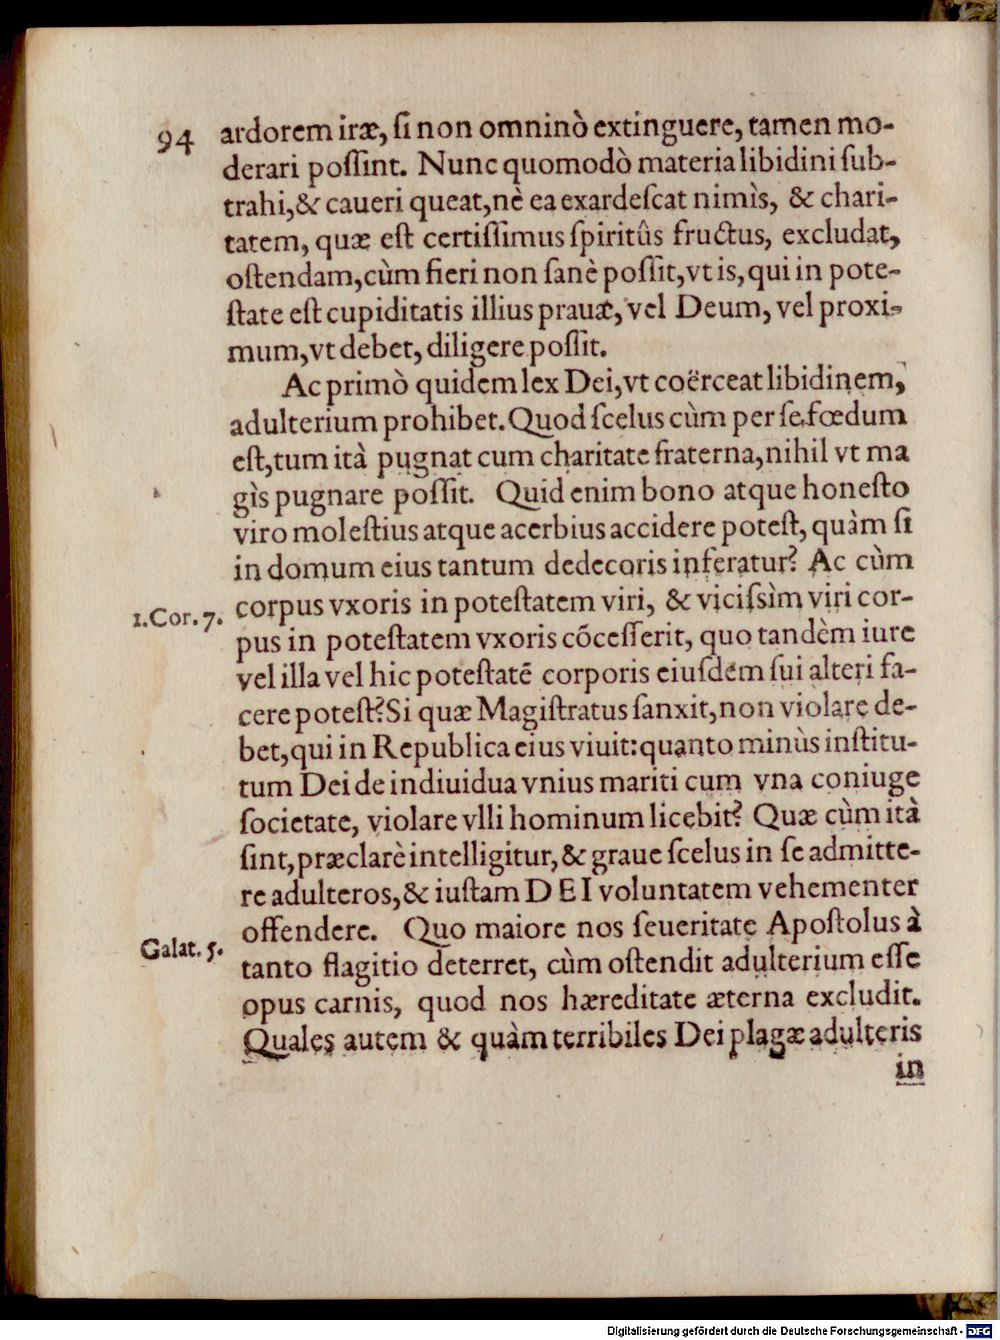 94 ardorem iræ, ſi non omninò extinguere, tamen mo-
derari poſſint. Nunc quomodò materia libidini ſub-
trahi, & caueri queat, nè ea exardeſcat nimìs, & chari-
tatem, quæ eſt certiſſimus ſpiritûs fructus, excludat,
oſtendam, cùm fieri non ſanè poſſit, vt is, qui in pote-
ſtate eſt cupiditatis illius prauæ, vel Deum, vel proxi-
mum, vt debet, diligere poſſit.
Ac primò quidem lex Dei, vt coërceat libidinem,
adulterium prohibet. Quod ſcelus cùm per ſe fœdum
eſt, tum ità pugnat cum charitate fraterna, nihil vt ma
gìs pugnare poſſit. Quid enim bono atque honeſto
viro moleſtius atque acerbius accidere poteſt, quàm ſi
in domum eius tantum dedecoris inferatur? Ac cùm
1. Cor. 7. corpus vxoris in poteſtatem viri, & viciſsìm viri cor-
pus in poteſtatem vxoris cōceſſerit, quo tandèm iure
vel illa vel hic poteſtatē corporis eiuſdém ſui alteri fa-
cere poteſt? Si quæ Magiſtratus ſanxit, non violare de-
bet, qui in Republica eius viuit: quanto minùs inſtitu-
tum Dei de indiuidua vnius mariti cum vna coniuge
ſocietate, violare vlli hominum licebit? Quæ cùm ità
ſint, præclarè intelligitur, & graue ſcelus in ſe admitte-
re adulteros, & iuſtam DEI voluntatem vehementer
offendere. Quo maiore nos ſeueritate Apoſtolus à
Galat. 5. tanto flagitio deterret, cùm oſtendit adulterium eſſe
opus carnis, quod nos hæreditate æterna excludit.
Quales autem & quàm terribiles Dei plagæ adulteris
in
Digitalisierung gefördert durch die Deutsche Forschungsgemeinschaft - DFG